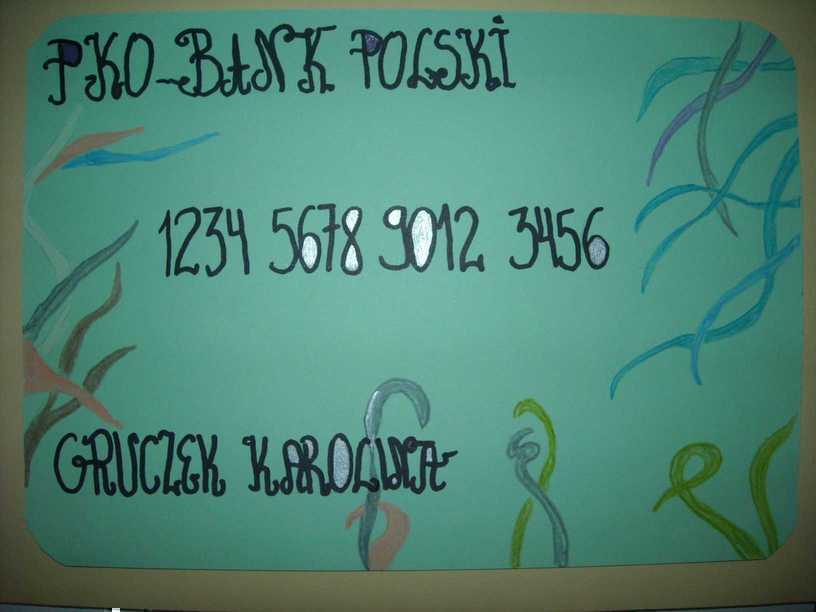 PKO-BANK POLSKI
1234 5678 9012 3456
GRUCZEK KAROLINA